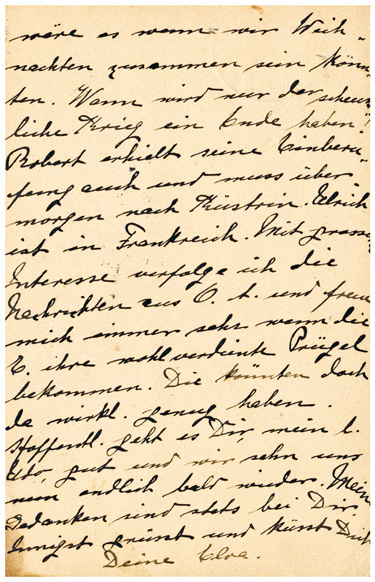 wäre es wenn wir Weih-
nachten zusammen sein könn-
ten. Wann wird nur der scheuß-
liche Krieg ein Ende haben!
Robert erhielt seine Einberu-
fung auch und muss über-
morgen nach Küstrin. Ulrich
ist in Frankreich. Mit grossem
Interesse verfolge ich die
Nachrichten aus O. A. und freue
mich immer sehr wenn die
E. ihre wohlverdiente Prügel
bekommen. Die könnten doch
da wirkl. genug haben.
Hoffentl. geht es Dir, mein l.
Udo, gut und wir sehn uns
nun endlich bald wieder. Meine
Gedanken sind stets bei Dir.
Innigst grüsst und küsst Dich
Deine